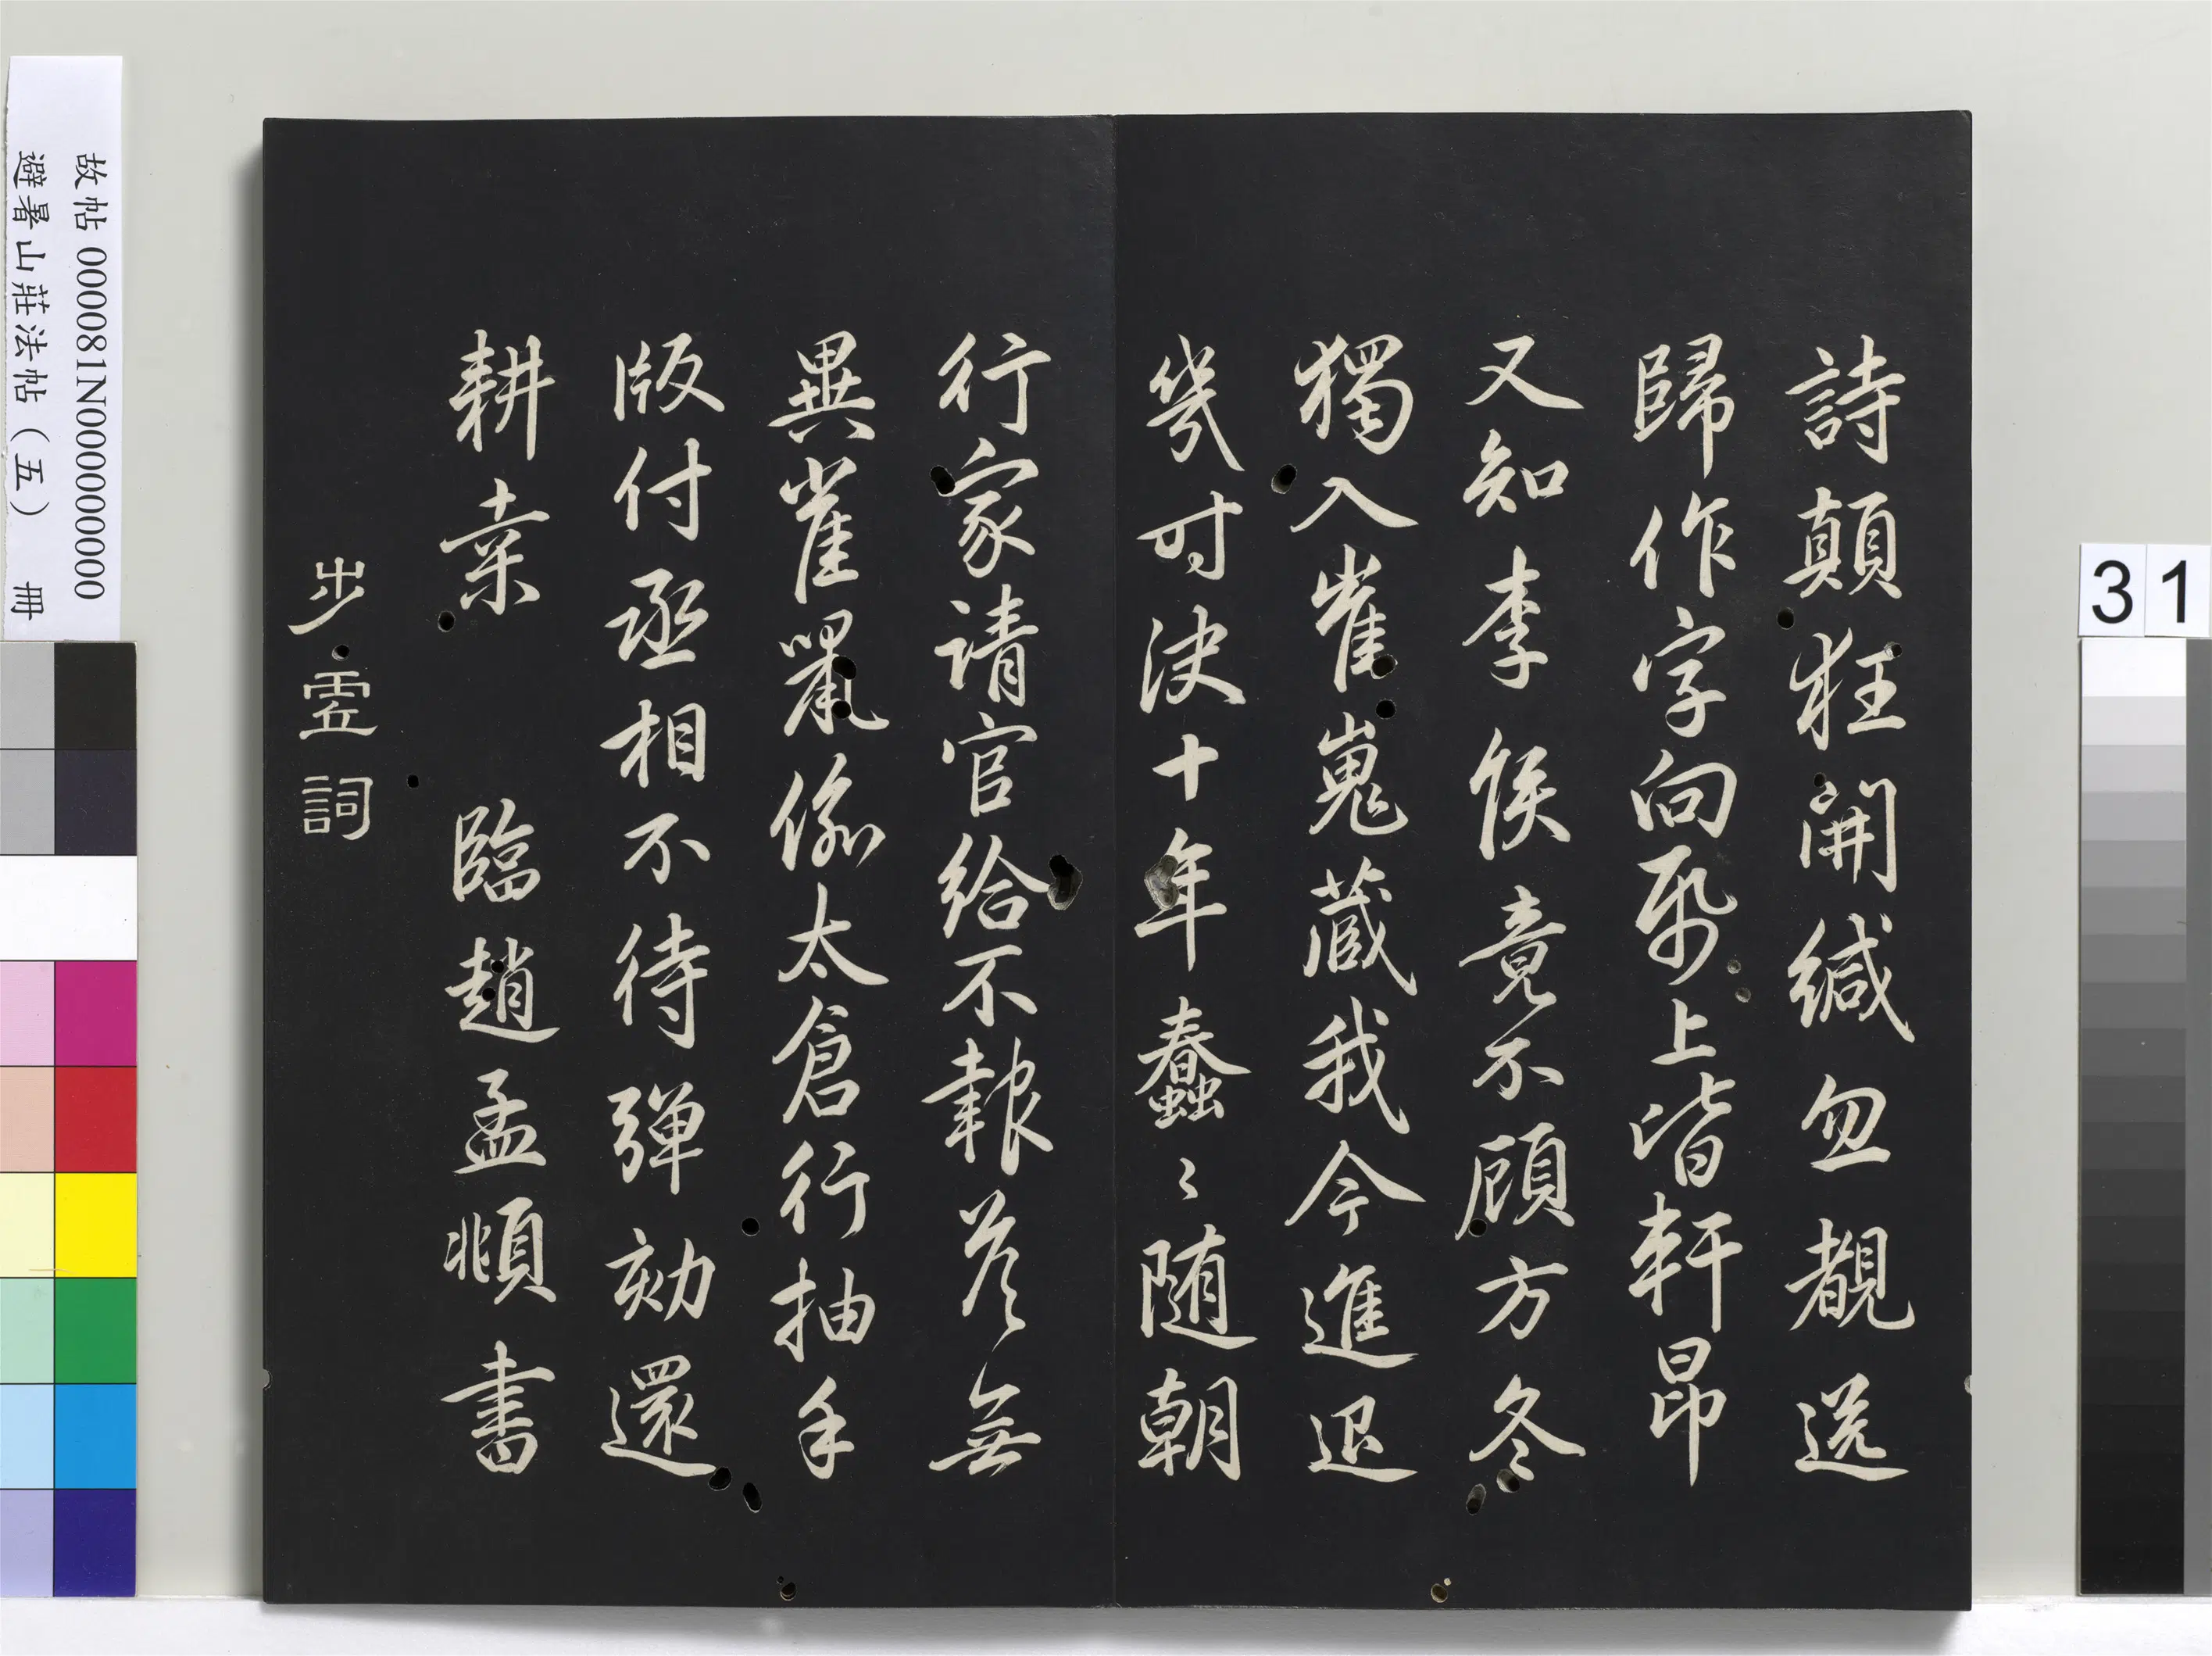 詩顛狂開緘忽覩送
歸作字向帋上皆軒昂
又知李侯竟不顧方冬
獨入崔嵬藏我今進退
幾时決十年蠢〻随朝
行家请官給不報荅無
異雀鼠偷太倉行抽手
版付丞相不待弹劾還
耕桒 臨趙孟頫書
步虛詞
故帖 000081N000000000
避暑山莊法帖（五） 冊
31